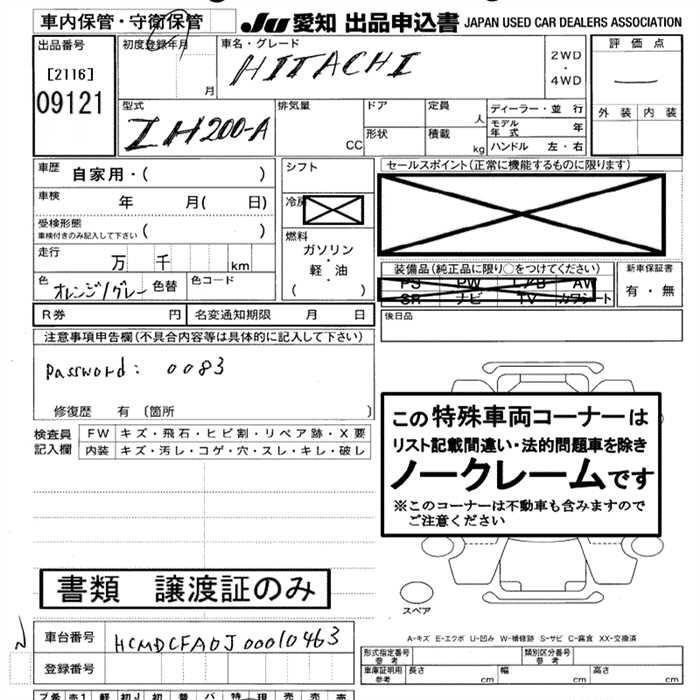 車内保管・守衛保管
JU 愛知 出品申込書 JAPAN USED CAR DEALERS ASSOCIATION
出品番号
[2116]
09121
初度登録年月
月
車名・グレード
HITACHI
2WD
・
4WD
評価点
外装 内装
型式
ZH200-A
排気量
CC
ドア
形状
定員
人
積載
kg
ディーラー・並行
モデル年式 年
ハンドル 左・右
車歴 自家用・( )
車検 年 月( 日)
受検形態
車検付きのみ記入して下さい ( )
走行 万 千 km
色 オレンジ/グレー 色替 色コード
シフト
冷房
燃料
ガソリン
・
軽・油
( )
セールスポイント(正常に機能するものに限ります)
装備品(純正品に限り○をつけてください)
PS PW エアB AW
SR ナビ TV カワシート
新車保証書
有・無
R券 円 名変通知期限 月 日
後日品
注意事項申告欄(不具合内容等は具体的に記入して下さい)
password: 0083
修復歴 有 〔箇所 〕
検査員
記入欄
FW キズ・飛石・ヒビ割・リペア跡・X要
内装 キズ・汚レ・コゲ・穴・スレ・キレ・破レ
この特殊車両コーナーは
リスト記載間違い・法的問題車を除き
ノークレームです
※このコーナーは不動車も含みますので
ご注意ください
スペア
書類 譲渡証のみ
A-キズ E-エクボ U-凹み W-補修跡 S-サビ C-腐食 XX-交換済
車台番号 HCMDCFA0J00010463
登録番号
形式指定番号
参考
類別区分番号
参考
車庫証明用
参考
長さ cm 幅 cm 高さ cm